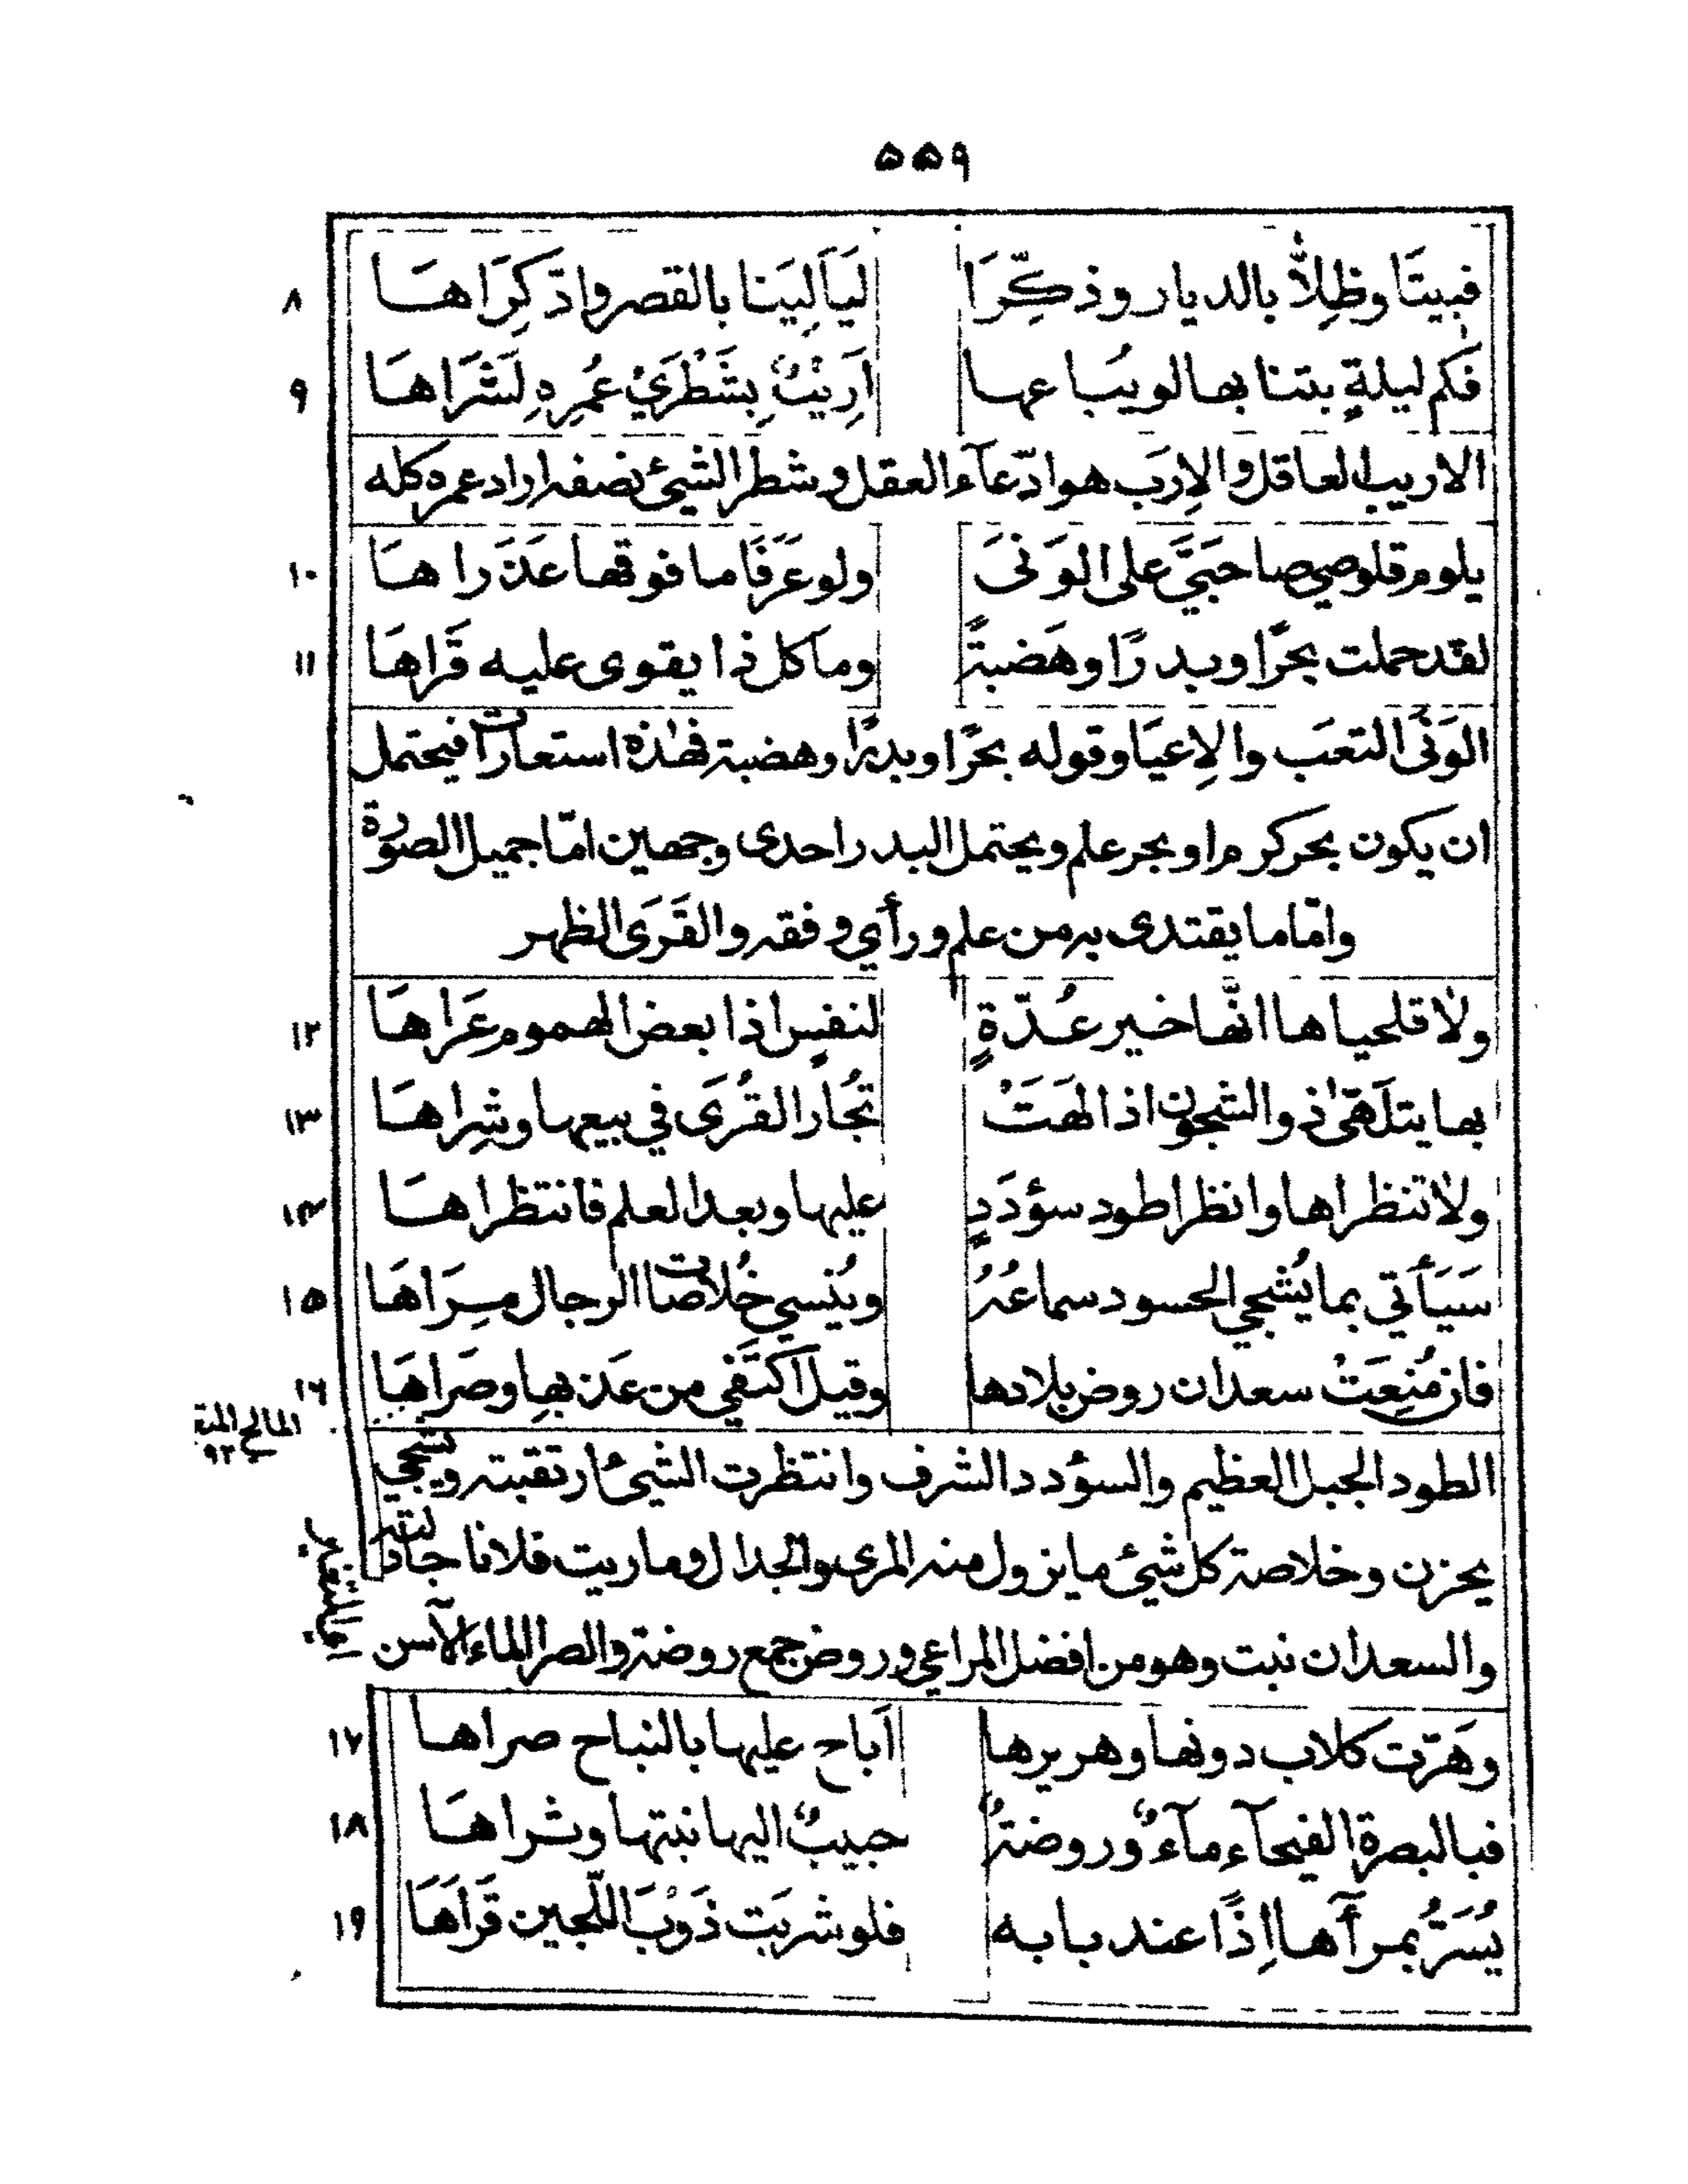 ٥٥٩
فبيتَا وظِلاّ بالديار وذكِّرَا لَيَاَلِيَنا بالقصر واذّكِرَاهَا ٨
فكم ليلةٍ بتنا بها لو يُبَاعها اَرِيْبٌ بِشَطْرَيْ عُمرِهِ لَشَرَاهَا ٩
الاريب العاقل والاِرَب هو ادّعآء العقل وشطر الشيئ نصفه اراد عمره كله
يلوم قلوصي صاحبَيَّ على الوَنىَ ولو عَرَفَا ما فوقها عَذَراهَا ١٠
لقد حملت بحرًا وبدرًا وهَضبةً وما كل ذا يقوى عليه قَراهَا ١١
الوَنَى التعَب والاِعيَا وقوله بحرًا وبدرًا وهضبة فهٰذه استعارات فيحتمل
ان يكون بحر كرم او بحر علم ويحتمل البدر احدى وجهين امّا جميل الصورة
وامّا ما يقتدى به من علم ورأي وفقه والقَرَى الظهر
ولا قلحياها انّها خير عُدّةٍ لنفسٍ اذا بعض الهموم عَراهَا ١٢
بها يتلَهّىٰ ذو الشجون اذا لهَتْ تُجّار القُرَى في بيعها وشِراهَا ١٣
ولا تنظراها وانظرا طود سؤدَدٍ عليها وبعد العلم فانتظراهَا ١٤
سَيَأتي بما يُشجي الحسود سماعُهُ ويُنسي خُلاصات الرجال مِرَاهَا ١٥
فان مُنِعَتْ سعدان روض بلادها وقيل اكتَفي من عَذبها وصَراهَا ١٦
المالح المنة ٩٣
الطود الجبل العظيم والسؤدد الشرف وانتظرت الشيئ ارتقبته ويشجي
يحزن وخلاصة كل شيئ ما يزول منه المرى والجدال وماريت فلانا جادلته
والسعدان نبت وهو من افضل المراعي وروض جمع روضة والصر الماء الآسن
وهَرّت كلاب دونها وهريرها اَباح عليها بالنباح صراهَا ١٧
فبالبصرة الفيحآء مآءٌ وروضةٌ حبيبٌ اليها نبتها وثراهَا ١٨
يُسَرُّ بمرأها اِذًا عند بابه فلو شربَت ذَوْبَ اللّجين قَراهَا ١٩